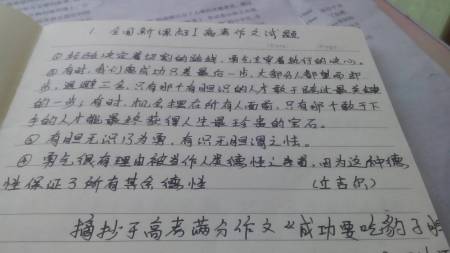 1. 全国新课标I高考作文试题
① 经验决定着切割的路线,勇气主宰着执行的决心。
② 有时,有时离成功只差最后一步,大部分人都望而却
步,退避三舍,只有那个有胆识的人才敢于跨过最关键
的一步;有时,机会摆在所有人面前,只有那个敢于下
手的人才能最终获得人生最珍贵的宝石。
③ 有胆无识谓为勇,有识无胆谓之怯。
④ 勇气很有理由被当作人类德性之首,因为这种德
性保证了所有其余德性 (丘吉尔)
摘抄于高考满分作文《成功要吃豹子胆